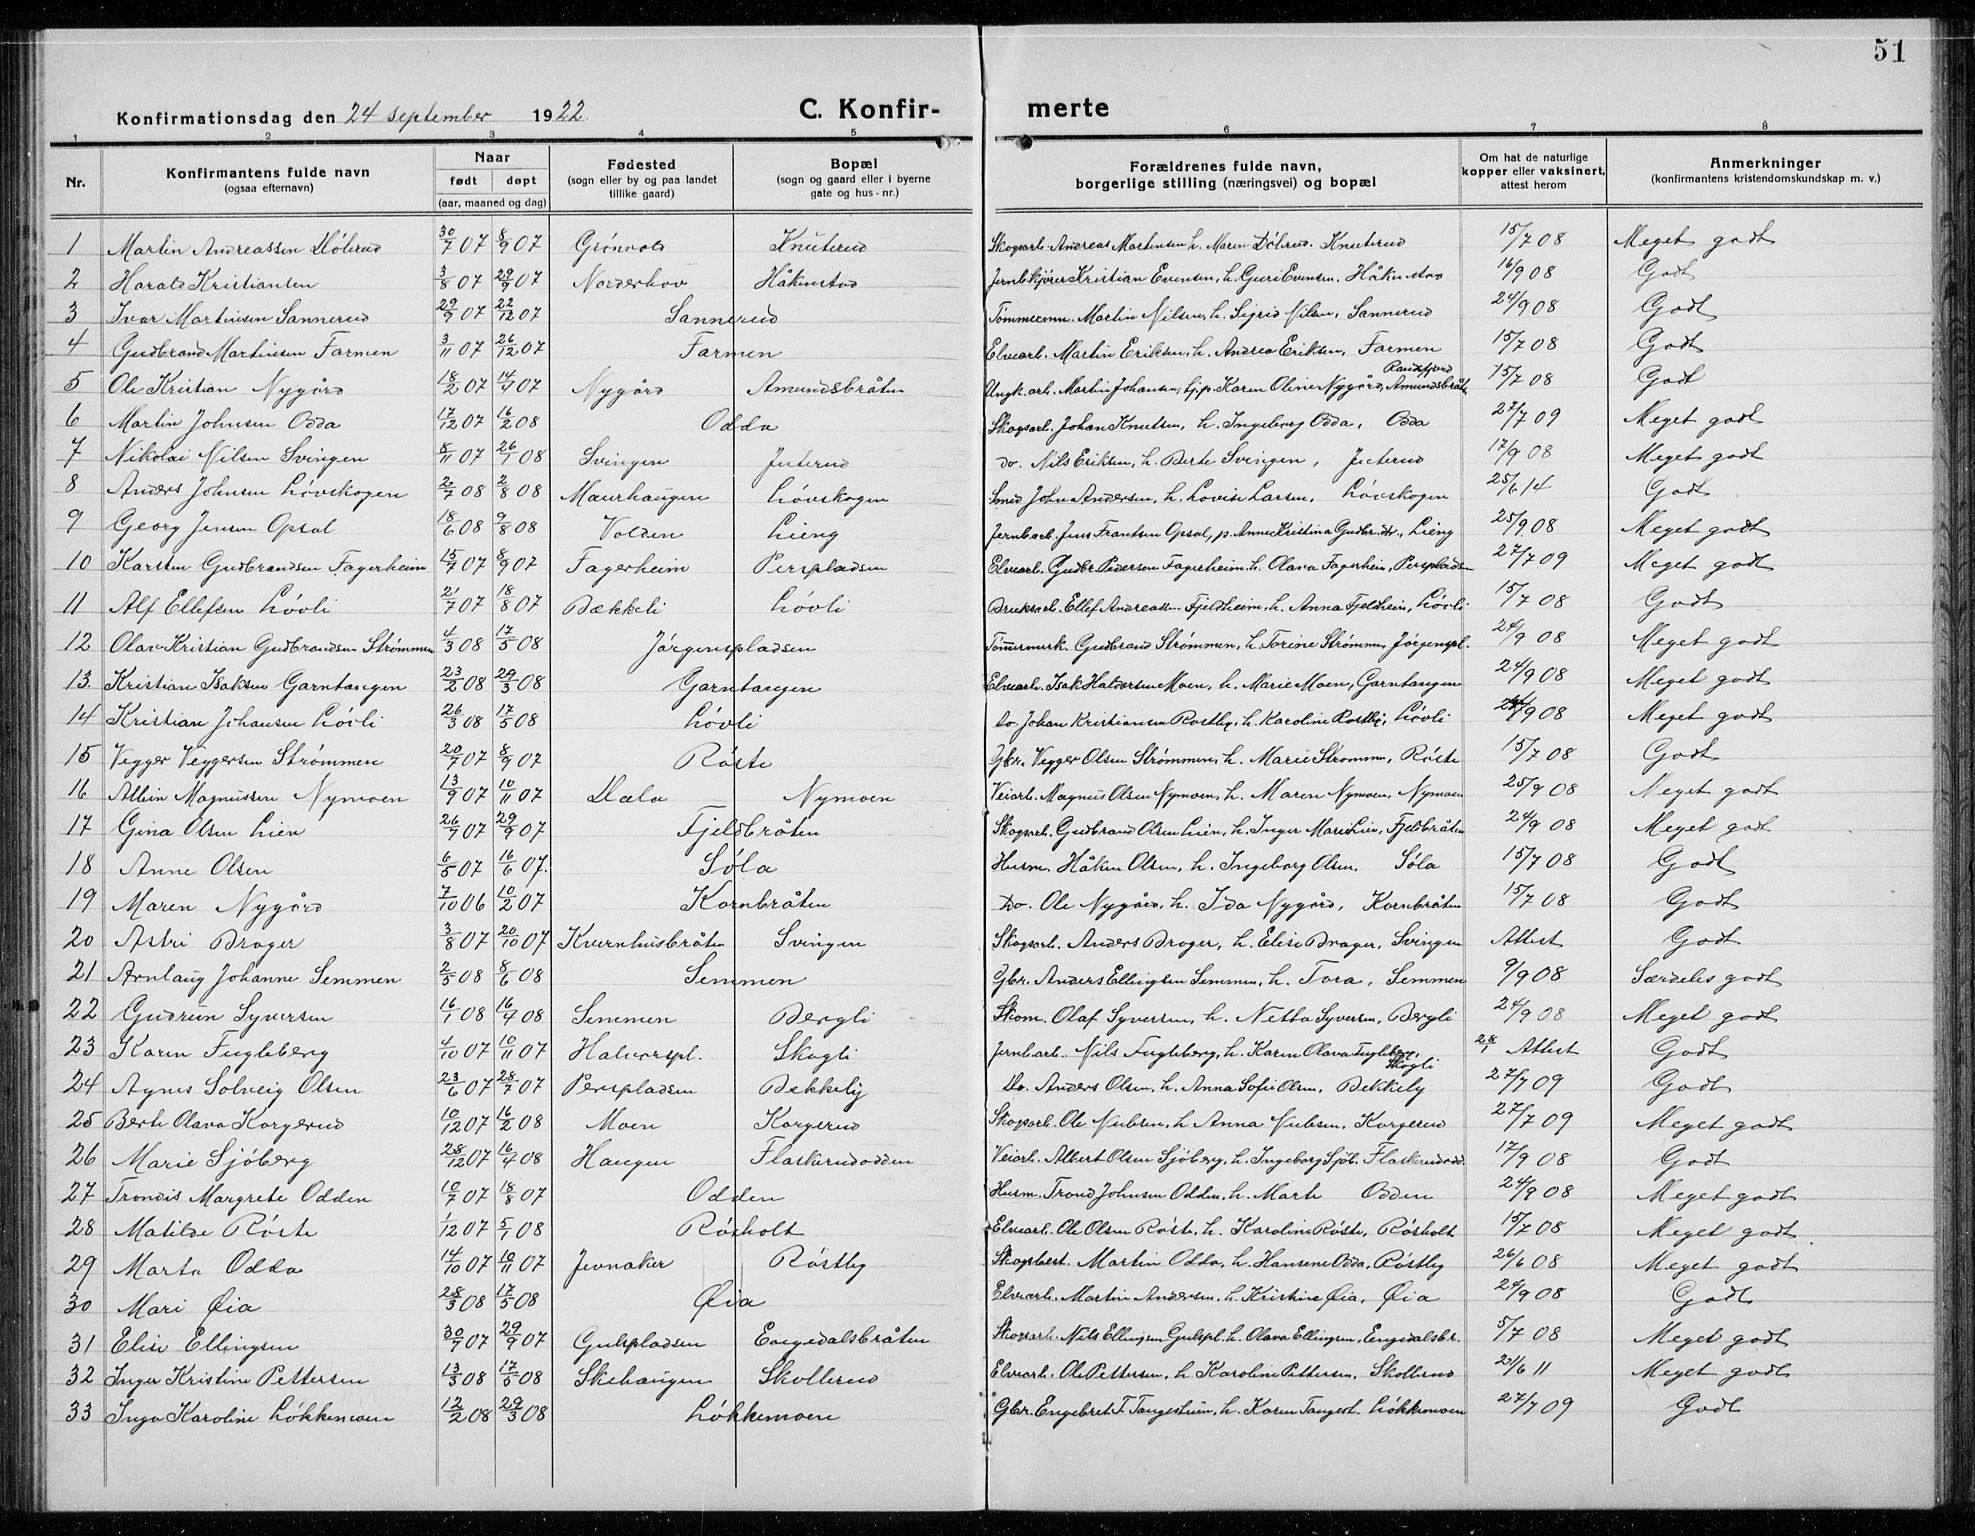 51
Konfirmationsdag den 24 september 1922. C. Konfirmerte
1 2 3 4 5 6 7 8
Nr. Konfirmantens fulde navn (ogsaa efternavn) Naar født døpt (aar, maaned og dag) Fødested (sogn eller by og paa landet tillike gaard) Bopæl (sogn og gaard eller i byerne gate og hus-nr.) Forældrenes fulde navn, borgerlige stilling (næringsvei) og bopæl Om hat de naturlige kopper eller vaksinert, attest herom Anmerkninger (konfirmantens kristendomskundskap m. v.)
1 Martin Andreassen 30/7 07 8/9 07 Grönvold Knuterud Skogsarb. Andreas Martinsen h. Maren Knuterud 15/7 08 Meget godt
2 Harald Kristiansen 3/8 07 29/9 07 Norderhov Håkinstad Jernbkjører Kristian Evensen, h. Guri Evensen, Håkinstad 16/9 08 Godt
3 Ivar Martinsen Sannerud 29/9 07 22/12 07 Sannerud Martin Nilsen, h. Sigrid Nilsen, Sannerud 24/9 08 Godt
4 Gudbrand Martinsen Farmen 3/11 07 26/12 07 Farmen Elvearb. Martin Eriksen, h. Andrea Eriksen, Farmen 15/7 08 Godt
5 Ole Kristian Nygård 18/2 07 14/4 07 Nygård Amundsbråten Ungk. arb. Martin Johansen, tj.p. Karen Oline Nygård, Amundsbråt. Randsfjord 15/7 08 Godt
6 Martin Johnsen Odda 17/12 07 16/2 08 Odda Skogsarb. Johan Knutsen, h. Ingeborg Odda, Odda 27/7 09 Meget godt
7 Nikolai Nilsen Svingen 8/11 07 26/1 08 Svingen Juterud Do. Nils Eriksen, h. Berte Svingen, Juterud 17/9 08 Meget godt
8 Anders Johnsen Lövskogen 2/7 08 2/8 08 Maurhaugen Lövskogen Smed John Andersen, h. Lovise Larsen, Lövskogen 25/6 14 Godt
9 Georg Jensen Opsal 18/6 08 9/8 08 Volden Lieng Jernb.arb. Jens Frantsen Opsal, p. Anne Kristina Gudbr. dt., Lieng 25/9 08 Meget godt
10 Karsten Gudbrandsen Fagerheim 15/7 07 8/9 07 Fagerheim Perspladsen Elvearb. Gudbr. Pedersen Fagerheim, h. Olava Fagerheim, Perspladsen 27/7 09 Meget godt
11 Alf Ellefsen Lövli 21/7 07 18/8 07 Bækkeli Lövli Bruksarb. Ellef Andreassen Fjeldheim, h. Anna Fjeldheim, Lövli 15/7 08 Godt
12 Olav Kristian Gudbrandsen Strømmen 4/3 08 17/5 08 Jörgenspladsen Tömmermerk. Gudbrand Strømmen, h. Torine Strømmen, Jörgenspl. 24/9 08 Meget godt
13. Kristian Isaksen Garntangen 23/2 08 29/3 08 Garntangen Elvearb. Isak Halvorsen Moen, h. Marie Moen, Garntangen 24/9 08 Meget godt
14 Kristian Johansen Lövli 26/3 08 17/5 08 Lövli Do. Johan Kristiansen Rostby, h. Karoline Rostby, Lövli 24/9 08 Meget godt
15 Vegger Veggersen Strømmen 20/7 07 8/9 07 Röste Gbr. Vegger Olsen Strømmen, h. Marie Strømmen, Röste 15/7 08 Godt
16 Albin Magnussen Nymoen 13/9 07 10/11 07 Nymoen Veiarb. Magnus Olsen Nymoen, h. Maren Nymoen, Nymoen 25/9 08 Meget godt
17 Gina Olsen Lien 26/7 07 29/9 07 Fjeldbråten Skogsarb. Gudbrand Olsen Lien, h. Inger Marie Lien, Fjeldbråten 24/9 08 Meget godt
18 Anne Olsen 6/5 07 16/6 07. Söla Husm. Håken Olsen, h. Ingeborg Olsen, Söla 15/7 08 Godt
19 Maren Nygård 7/10 06 10/2 07 Kornbråten Do. Ole Nygård, h. Ida Nygård, Kornbråten 15/7 08 Godt
20 Astri Brager 3/8 07 20/10 07 Kvernhusbråten Svingen Skogsarb. Anders Brager, h. Elise Brager, Svingen Attest Godt
21 Arnlaug Johanne Semmen 2/5 08 8/6 08 Semmen Gbr. Anders Ellingsen Semmen, h. Tora, Semmen 9/9 08 Særdeles godt
22 Gudrun Syversen 16/1 08 16/4 08 Semmen Bergli Skom. Olaf Syversen, h. Netta Syversen, Bergli 24/9 08 Meget godt
23 Karen Fugleberg 4/10 07 10/11 07 Halvorspl. Skogli Jernb.arb. Nils Fugleberg, h. Karen Olava Fugleberg, Skogli 28/1 Attest Godt
24 Agnes Solveig Olsen 23/6 07 28/7 07 Perspladsen Bekkely Do. Anders Olsen, h. Anna Sofie Olsen, Bekkely 27/7 09 Godt
25 Berte Olava Korgerud 10/12 07 16/2 08 Moen Korgerud Skogsarb. Ole Nielsen, h. Anna Nielsen, Korgerud 27/7 09 Meget godt
26 Marie Sjöberg 28/12 07 16/4 08 Haugen Flaskerudodden Veiarb. Albert Olsen Sjöberg, h. Ingeborg Sjöb. Flaskerudodd. 17/9 08 Godt
27 Trondis Margrete Odden 10/7 07 18/8 07 Odden Husm. Trond Johnsen Odden, h. Marte Odden 24/9 08 Meget godt
28 Matilde Röste 1/12 07 5/1 08 Rösholt Elvearb. Ole Olsen Röste, h. Karoline Röste, Rösholt 15/7 08 Meget godt
29 Marta Odda 14/10 07 10/11 07 Jevnaker Röstby Skogsbest. Martin Odda, h. Hansine Odda, Röstby 26/6 08 Meget godt
30 Mari Øia 28/3 08 17/5 08 Øia Elvearb. Martin Andersen, h. Kristine Øia, Øia 24/9 08 Godt
31 Elise Ellingsen 30/7 07 29/9 07 Gulspladsen Engedalsbråten Skogsarb. Nils Ellingsen Gulspl. h. Olava Ellingsen, Engedalsbr. 5/7 08 Meget godt
32 Inger Kristine Pettersen 13/3 08 17/5 08 Skehaugen Skollerud Elvearb. Ole Pettersen, h. Karoline Pettersen, Skollerud 21/6 11 Meget godt
33 Inga Karoline Lökkemoen 12/2 08 29/3 08 Lökkemoen Gbr. Engebret T. Tangestuen, h. Karen Tangest. Lökkemoen 27/7 09 Godt